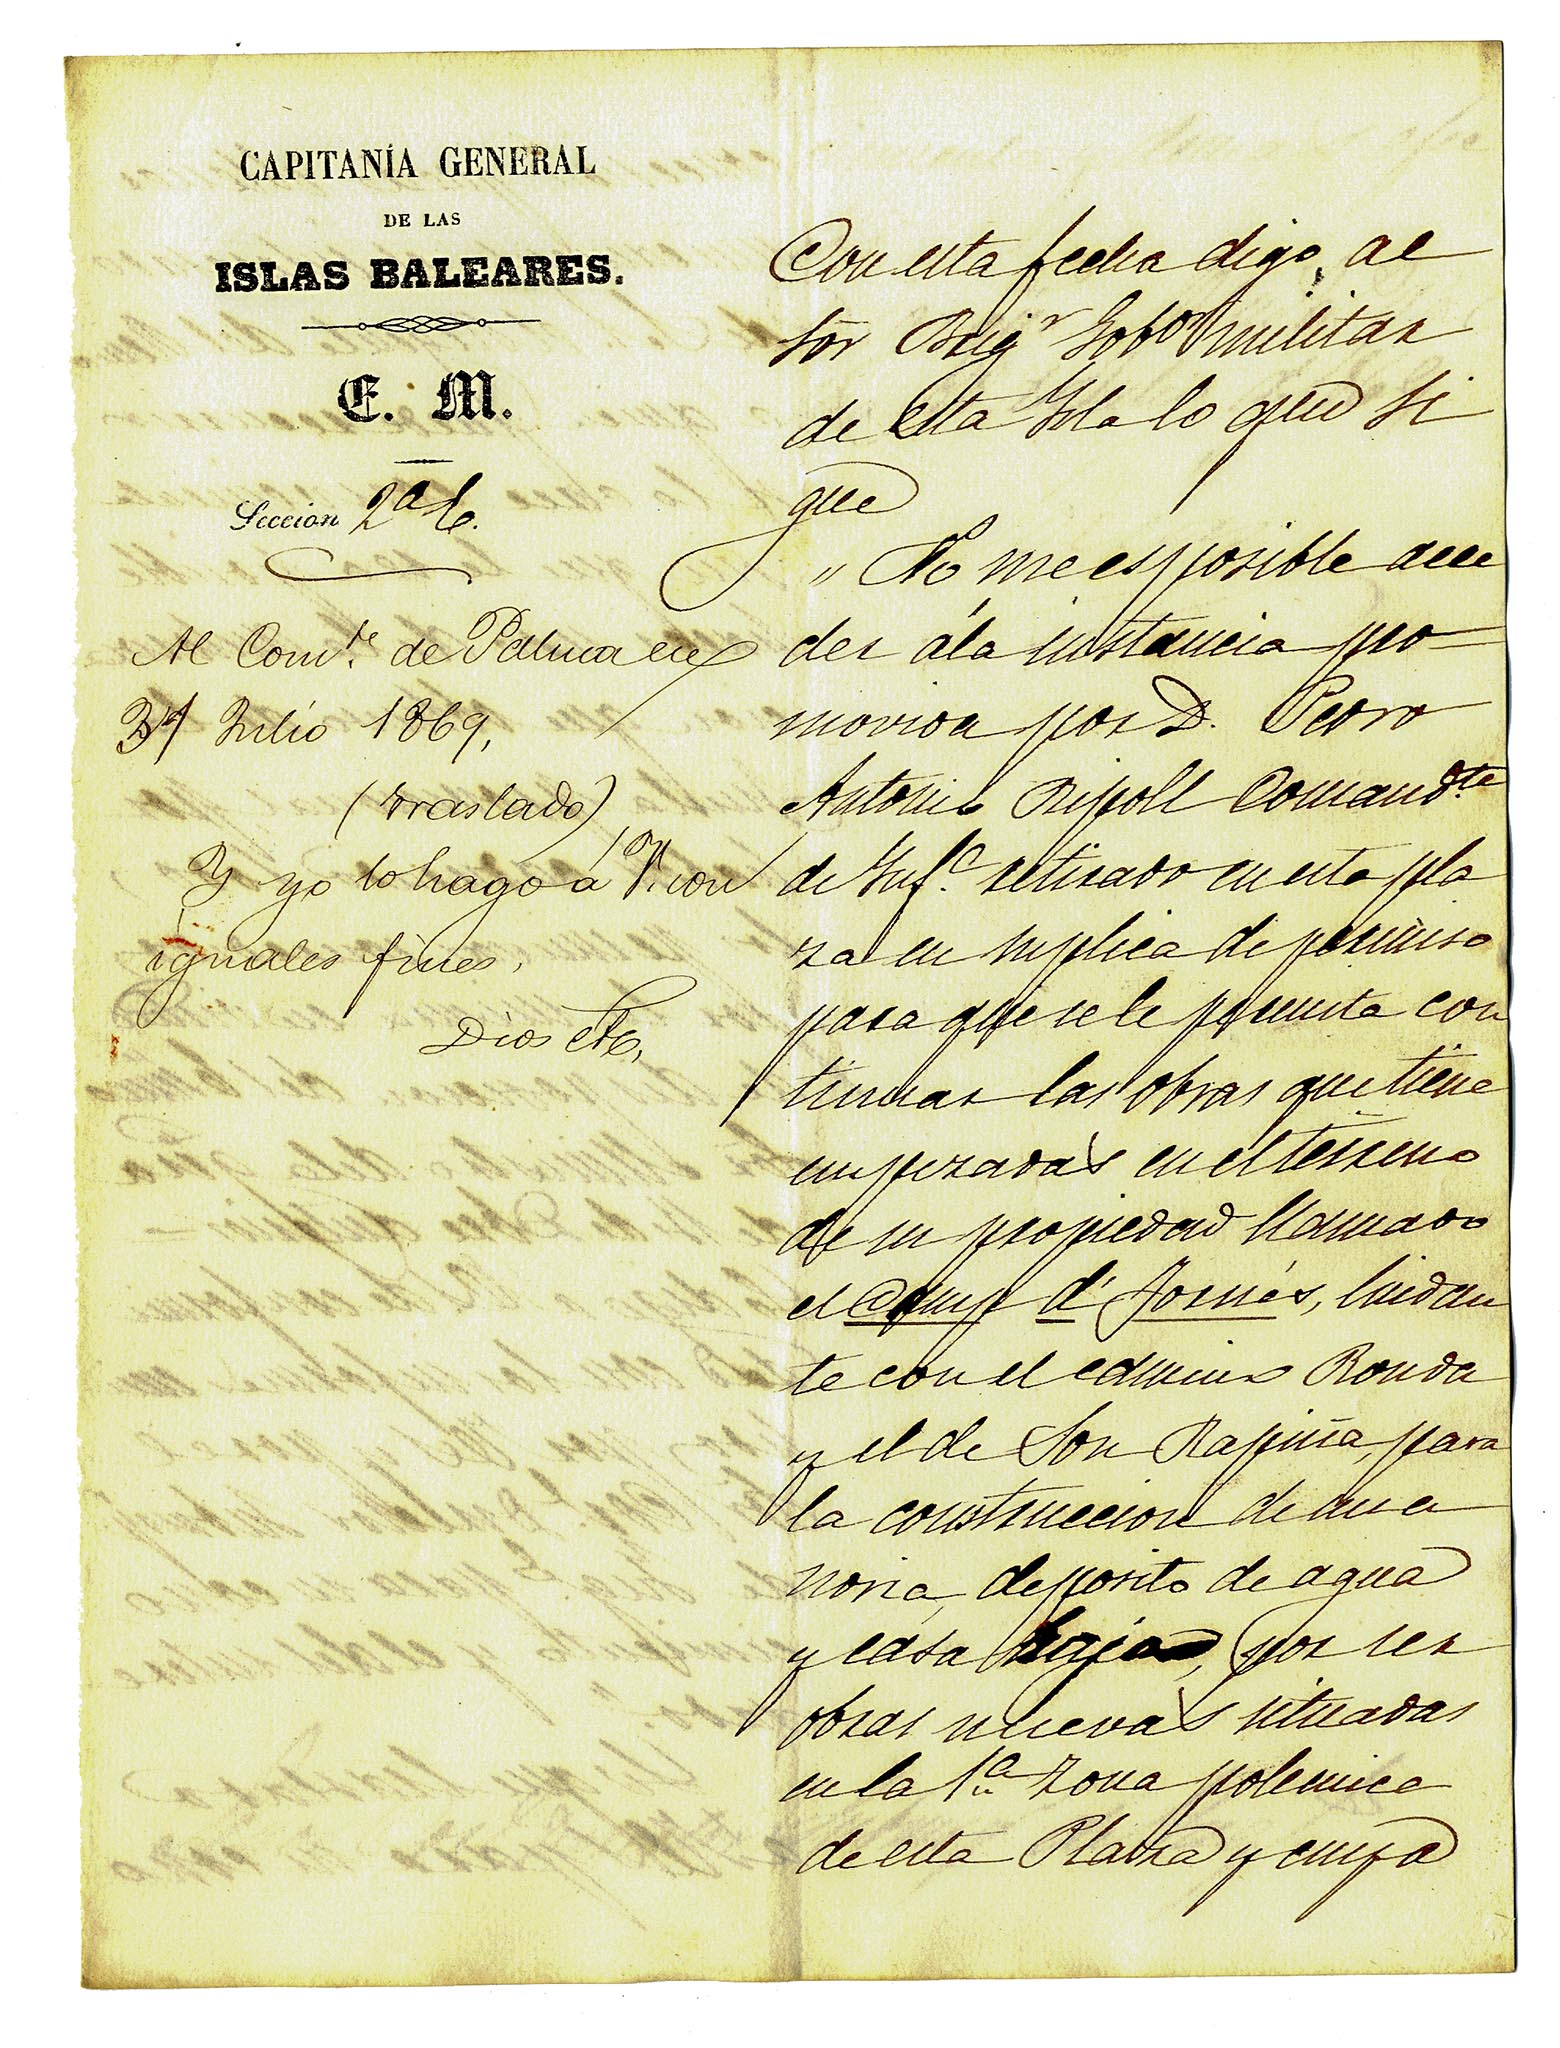 CAPITANÍA GENERAL
DE LAS
ISLAS BALEARES.
E. M.
Seccion 2ª
Al Com.te de Palma en
31 Julio 1869,
(traslado)
Y yo lo hago á V. con
iguales fines,
Dios etc,
Con esta fecha digo al
Sõr Brigr Gobor militar
de esta Isla lo que si
gue
" No me es posible acce
der á la instancia pro=
movida por D. Pedro
Antonio Ripoll Comandte
de Inf.a retirado en esta pla
za en suplica de permiso
para que se le permita con
tinuar las obras que tiene
empezadas en el terreno
de su propiedad llamado
el Camp d' Jornés, lindan
te con el camino Ronda
y el de Son Rapiña, para
la construccion de una
noria, deposito de agua
y casa, por ser
obras nuevas situadas
en la 1ª zona polemica
de esta Plaza y cuya